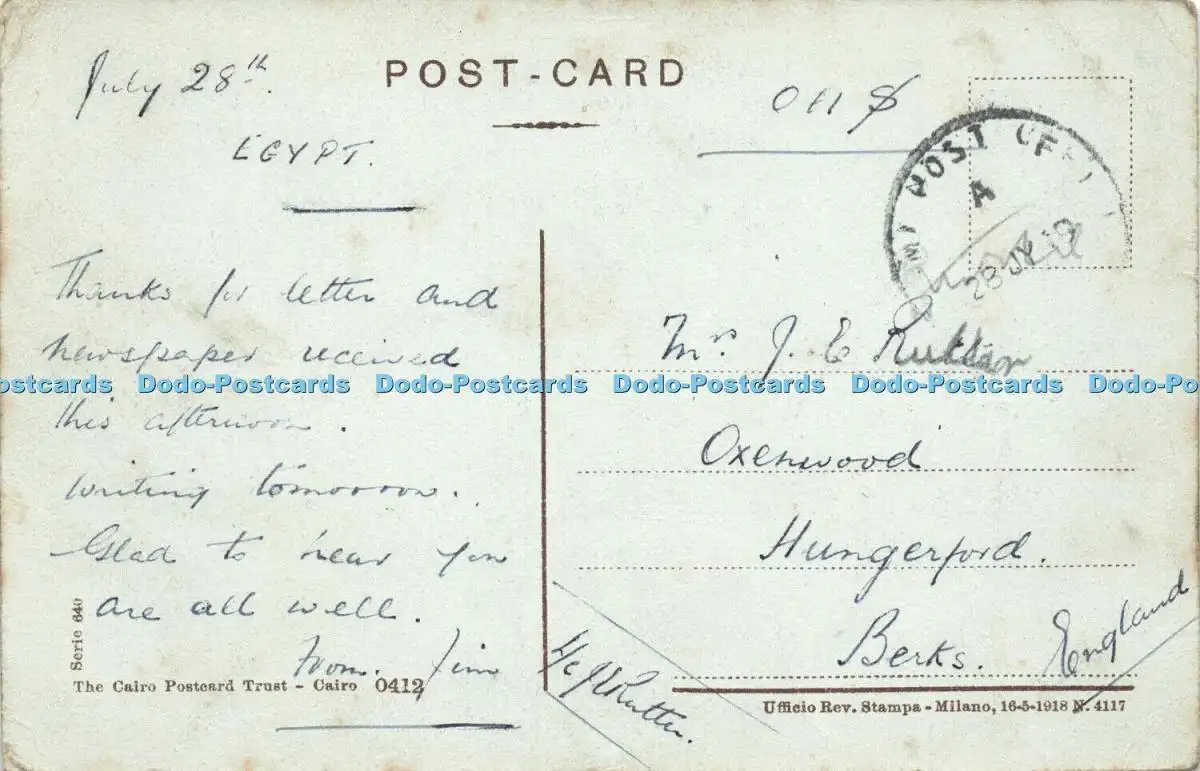 POST-CARD
July 28th.
EGYPT.
Thanks for letter and
newspaper received
this afternoon.
writing tomorrow.
Glad to hear you
are all well.
from. Jim
Serie 640
The Cairo Postcard Trust - Cairo 0412
O H S
POST OFFI
A
28 JY 19
Mrs. J. E Rutter
Oxenwood
Hungerford.
Berks.
England
Rutter.
Ufficio Rev. Stampa - Milano, 16-5-1918 N. 4117
Dodo-Postcards Dodo-Postcards Dodo-Postcards Dodo-Postcards Dodo-Postcards